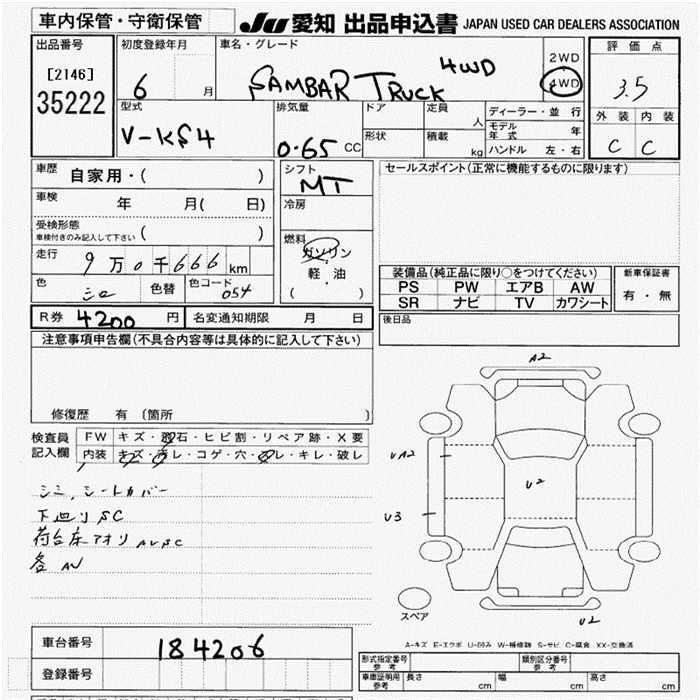 車内保管・守衛保管
JU 愛知 出品申込書 JAPAN USED CAR DEALERS ASSOCIATION
出品番号
[2146]
35222
初度登録年月
6 月
車名・グレード
SAMBAR TRUCK 4WD
2WD
4WD
評価点
3.5
外装 内装
C C
型式
V-KS4
排気量
0.65 CC
ドア
定員
人
形状
積載
kg
ディーラー・並行
モデル年式 年
ハンドル 左・右
車歴
自家用・( )
車検 年 月( 日)
受検形態
車検付きのみ記入して下さい ( )
走行 9万0千666km
色 シロ 色替 色コード 054
シフト
MT
冷房
燃料
ガソリン
軽・油
( )
セールスポイント(正常に機能するものに限ります)
装備品(純正品に限り○をつけてください)
PS PW エアB AW
SR ナビ TV カワシート
新車保証書
有・無
R券 4200 円 名変通知期限 月 日
後日品
注意事項申告欄(不具合内容等は具体的に記入して下さい)
修復歴 有 〔箇所 〕
検査員記入欄
FW キズ・飛石・ヒビ割・リペア跡・X要
内装 キズ・汚レ・コゲ・穴・スレ・キレ・破レ
シミ,シートカバー
下廻りSC
荷台床アオリAUSC
各AU
A2
UA2
U2
U3
U2
スペア
A-キズ E-エクボ U-凹み W-補修跡 S-サビ C-腐食 XX-交換済
車台番号 184206
登録番号
形式指定番号 参考
類別区分番号 参考
車庫証明用 参考 長さ cm 幅 cm 高さ cm